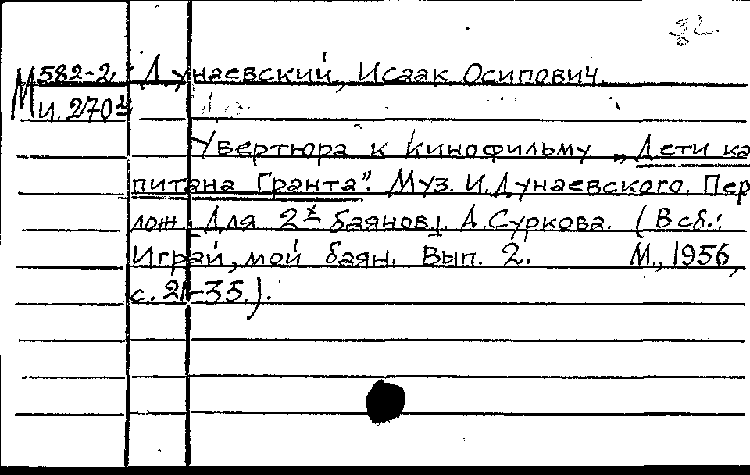 82.
М 582-2 Дунаевский, Исаак Осипович.
И. 270
Увертюра к кинофильму „Дети ка
питана Гранта". Муз. И. Дунаевского. Пер
лож. для 2х баянов А. Суркова. (В сб.:
Играй, мой баян. Вып. 2. М., 1956,
с. 21-35.).